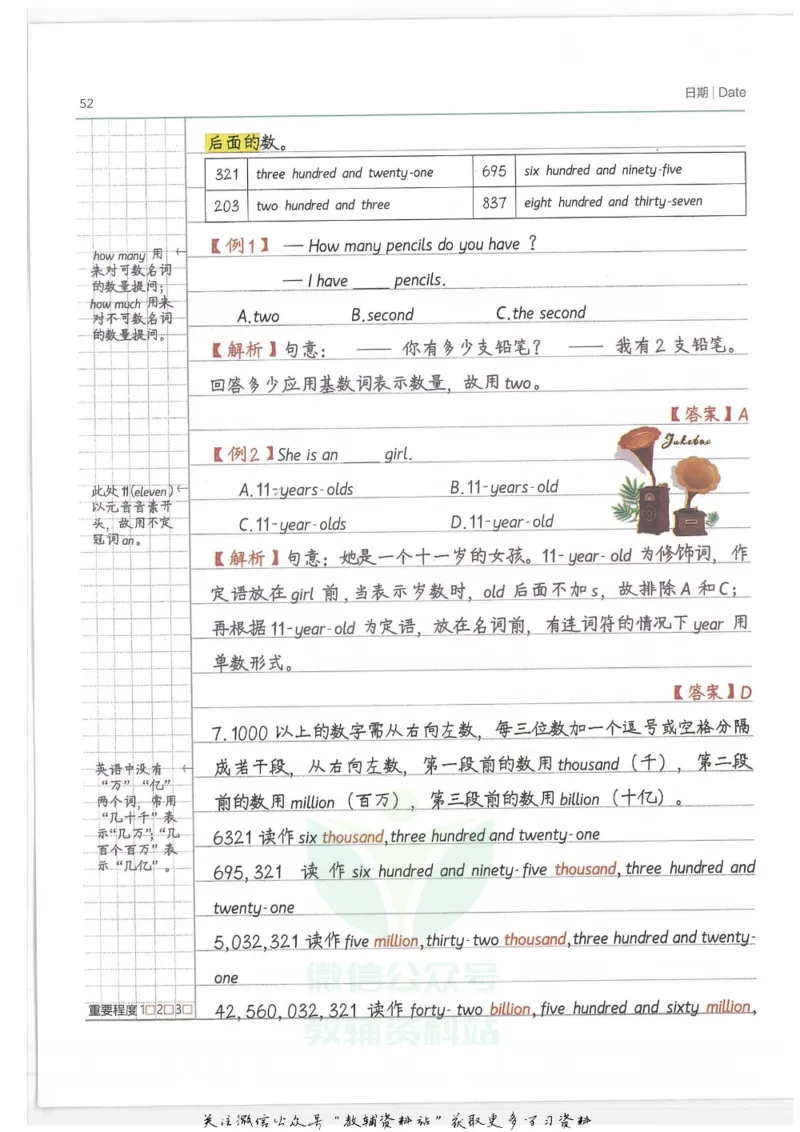 52
日期 | Date
后面的数。
321 three hundred and twenty-one 695 six hundred and ninety-five
203 two hundred and three 837 eight hundred and thirty-seven
how many 用
来对可数名词
的数量提问；
how much 用来
对不可数名词
的数量提问。
【例1】 — How many pencils do you have ？
— I have ____ pencils.
A.two B.second C.the second
【解析】句意： —— 你有多少支铅笔？ —— 我有2支铅笔。
回答多少应用基数词表示数量，故用 two。
【答案】A
Jukebox
【例2】She is an ____ girl.
此处 11(eleven)
以元音音素开
头，故用不定
冠词an。
A.11-years-olds B.11-years-old
C.11-year-olds D.11-year-old
【解析】句意：她是一个十一岁的女孩。11-year-old 为修饰词，作
定语放在 girl 前，当表示岁数时，old 后面不加 s，故排除 A 和 C；
再根据 11-year-old 为定语，放在名词前，有连词符的情况下 year 用
单数形式。
【答案】D
7.1000 以上的数字需从右向左数，每三位数加一个逗号或空格分隔
成若干段，从右向左数，第一段前的数用 thousand（千），第二段
前的数用 million（百万），第三段前的数用 billion（十亿）。
英语中没有
“万”“亿”
两个词，常用
“几十千”表
示“几万”；“几
百个百万”表
示“几亿”。
6321 读作 six thousand,three hundred and twenty-one
695,321 读作 six hundred and ninety-five thousand, three hundred and
twenty-one
5,032,321 读作 five million,thirty-two thousand,three hundred and twenty-
one
42,560,032,321 读作 forty-two billion,five hundred and sixty million,
重要程度 1□2□3□
微信公众号
教辅资料站
关注微信公众号“教辅资料站”获取更多学习资料